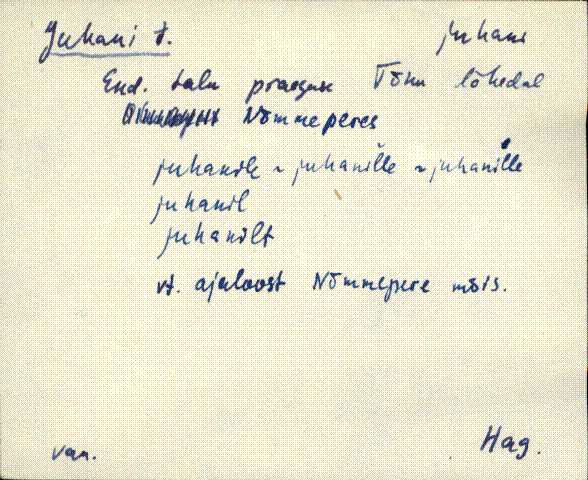 Juhani t. juhani
End. talu praeguse Tõnu lähedal
Nõmmeperes
juhanile ~ juhanille ~ juhanille
juhanil
juhanilt
vt. ajaloost Nõmmepere mõis.
van. Hag.